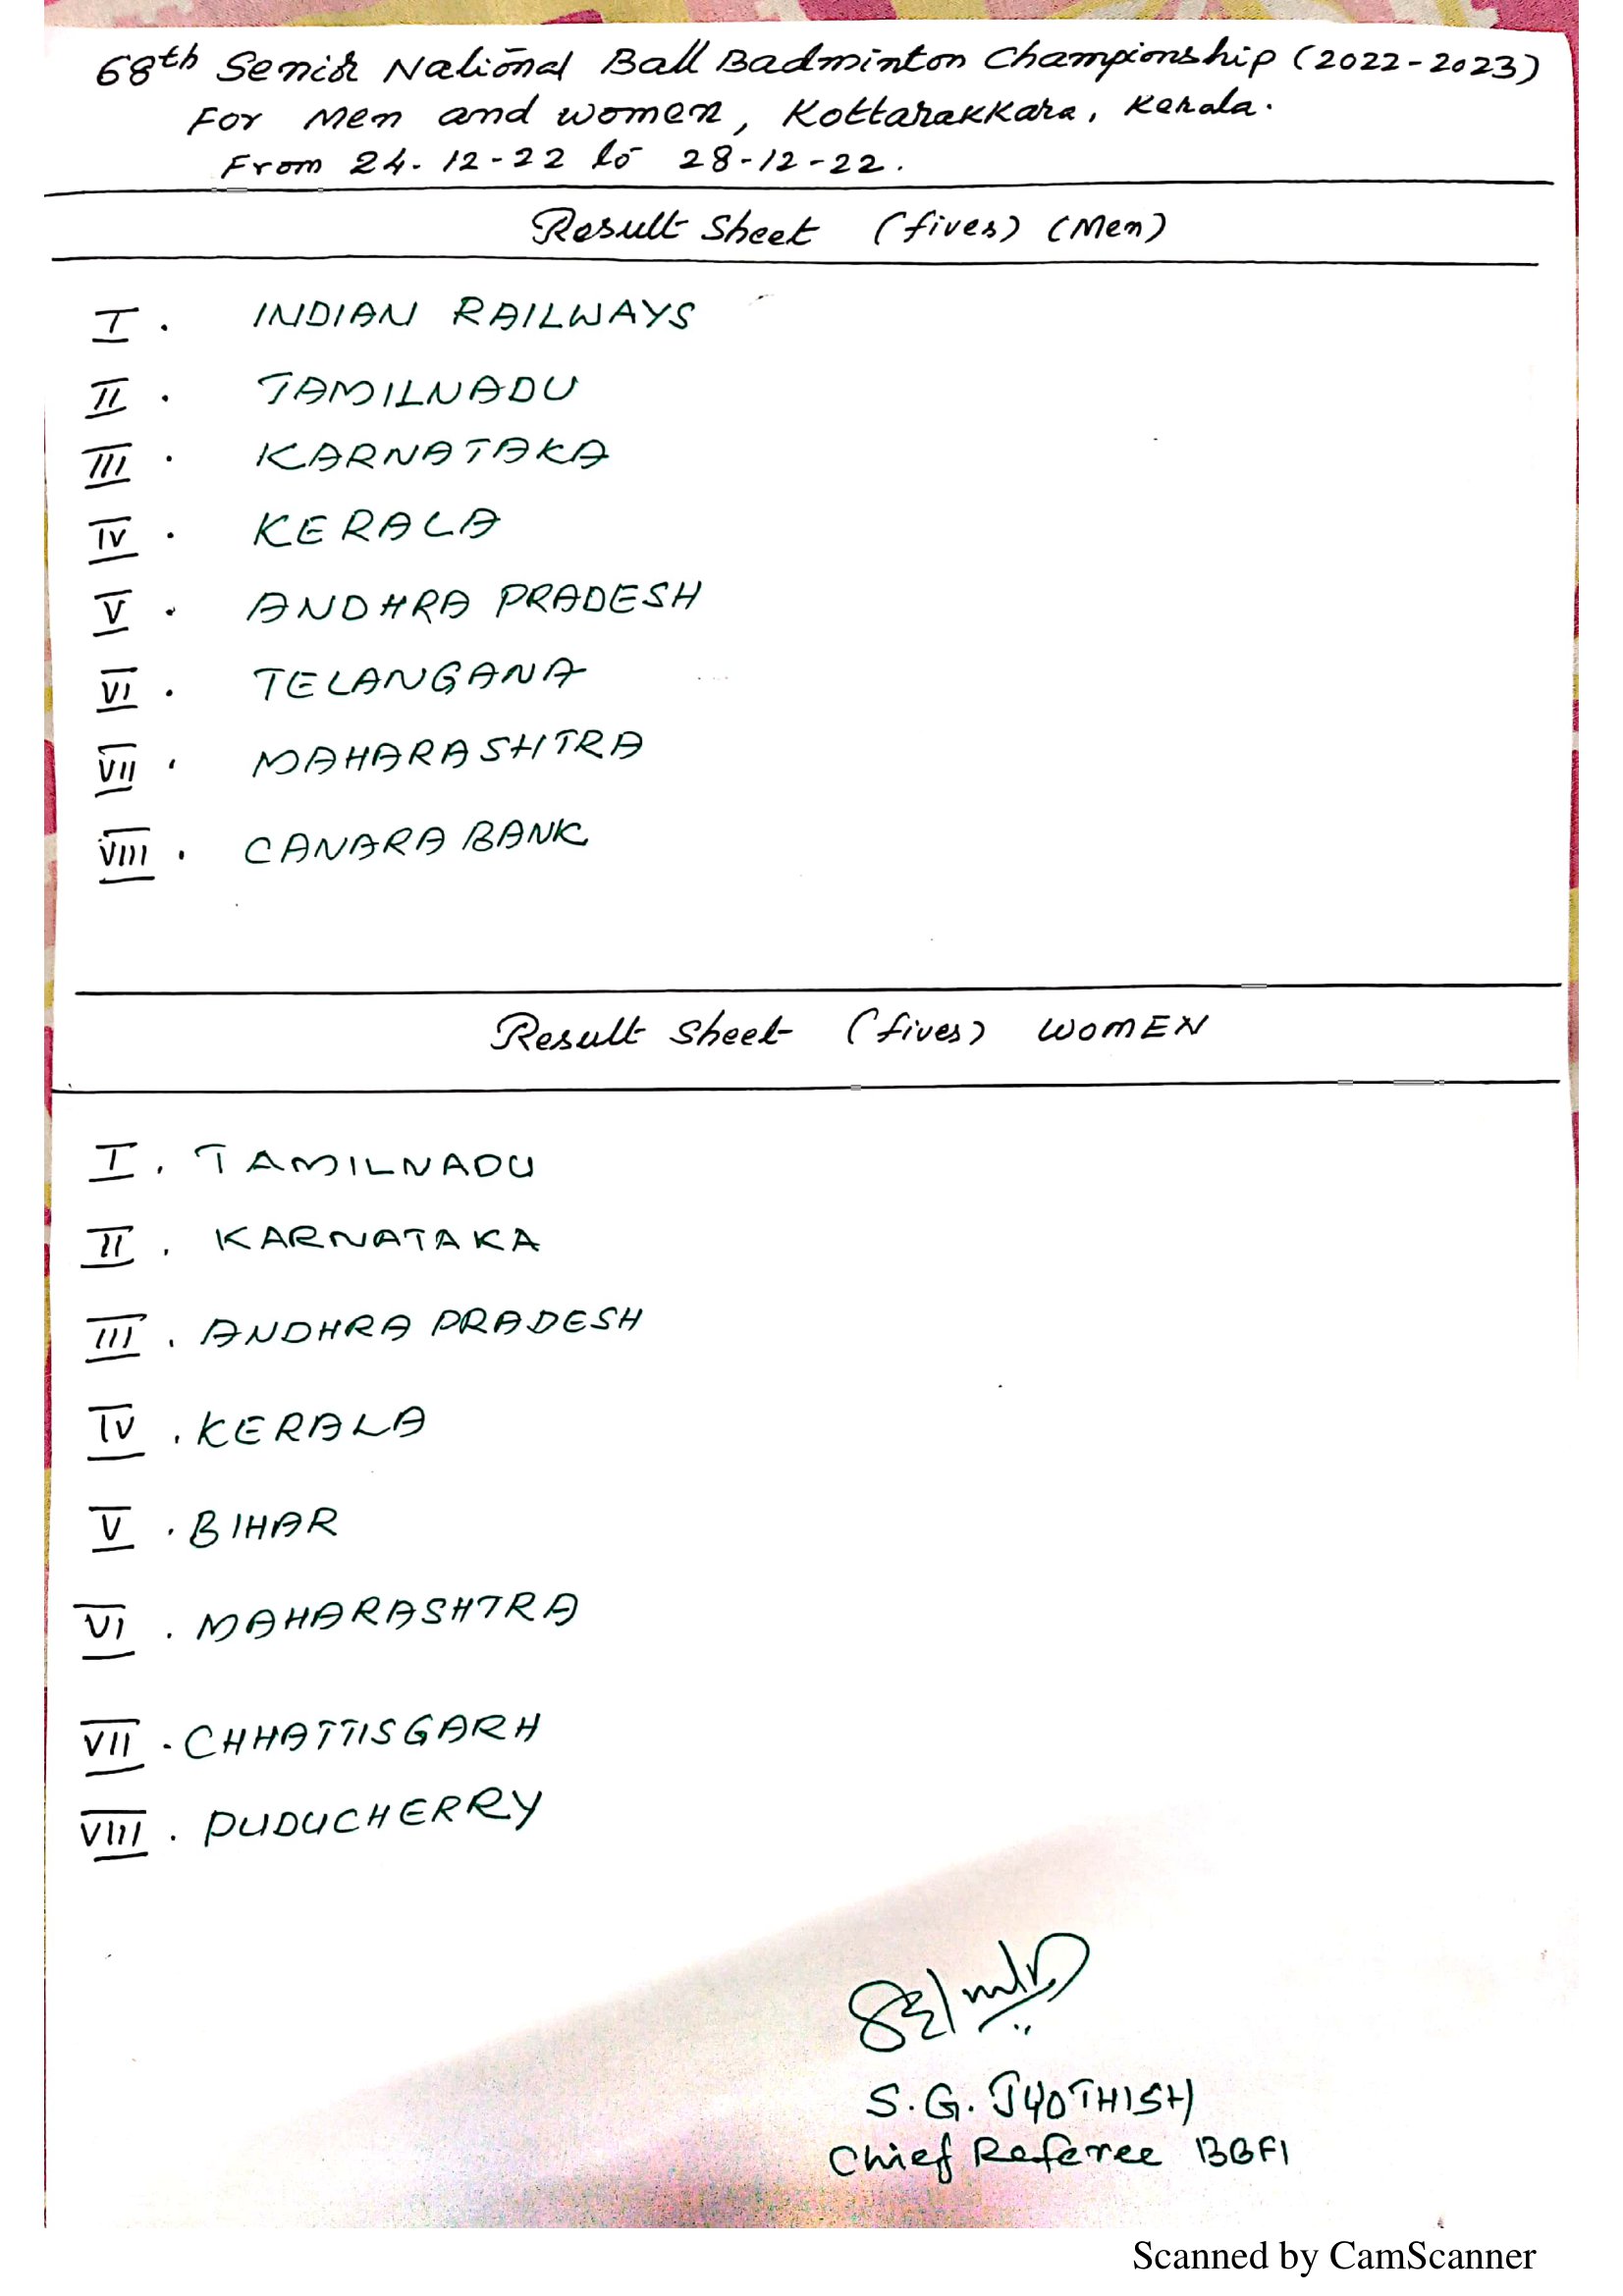 68th Senior National Ball Badminton Championship (2022-2023)
For Men and women, Kottarakkara, Kerala.
From 24-12-22 to 28-12-22.
Result Sheet (fives) (Men)
I. INDIAN RAILWAYS
II. TAMILNADU
III. KARNATAKA
IV. KERALA
V. ANDHRA PRADESH
VI. TELANGANA
VII. MAHARASHTRA
VIII. CANARA BANK
Result Sheet (fives) WOMEN
I. TAMILNADU
II. KARNATAKA
III. ANDHRA PRADESH
IV. KERALA
V. BIHAR
VI. MAHARASHTRA
VII. CHHATTISGARH
VIII. PUDUCHERRY
S.G. JYOTHISH
Chief Referee BBFI
Scanned by CamScanner